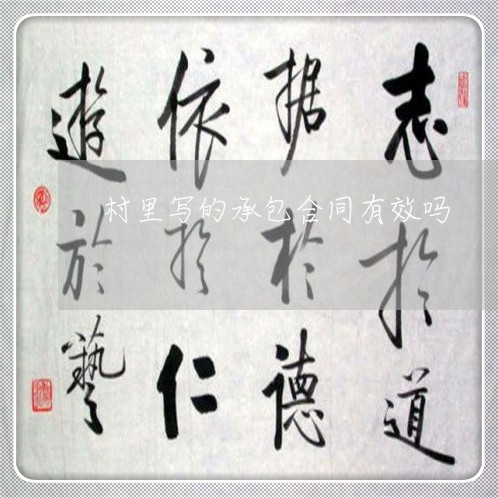 志於道
据於德
依於仁
遊於藝
村里写的承包合同有效吗